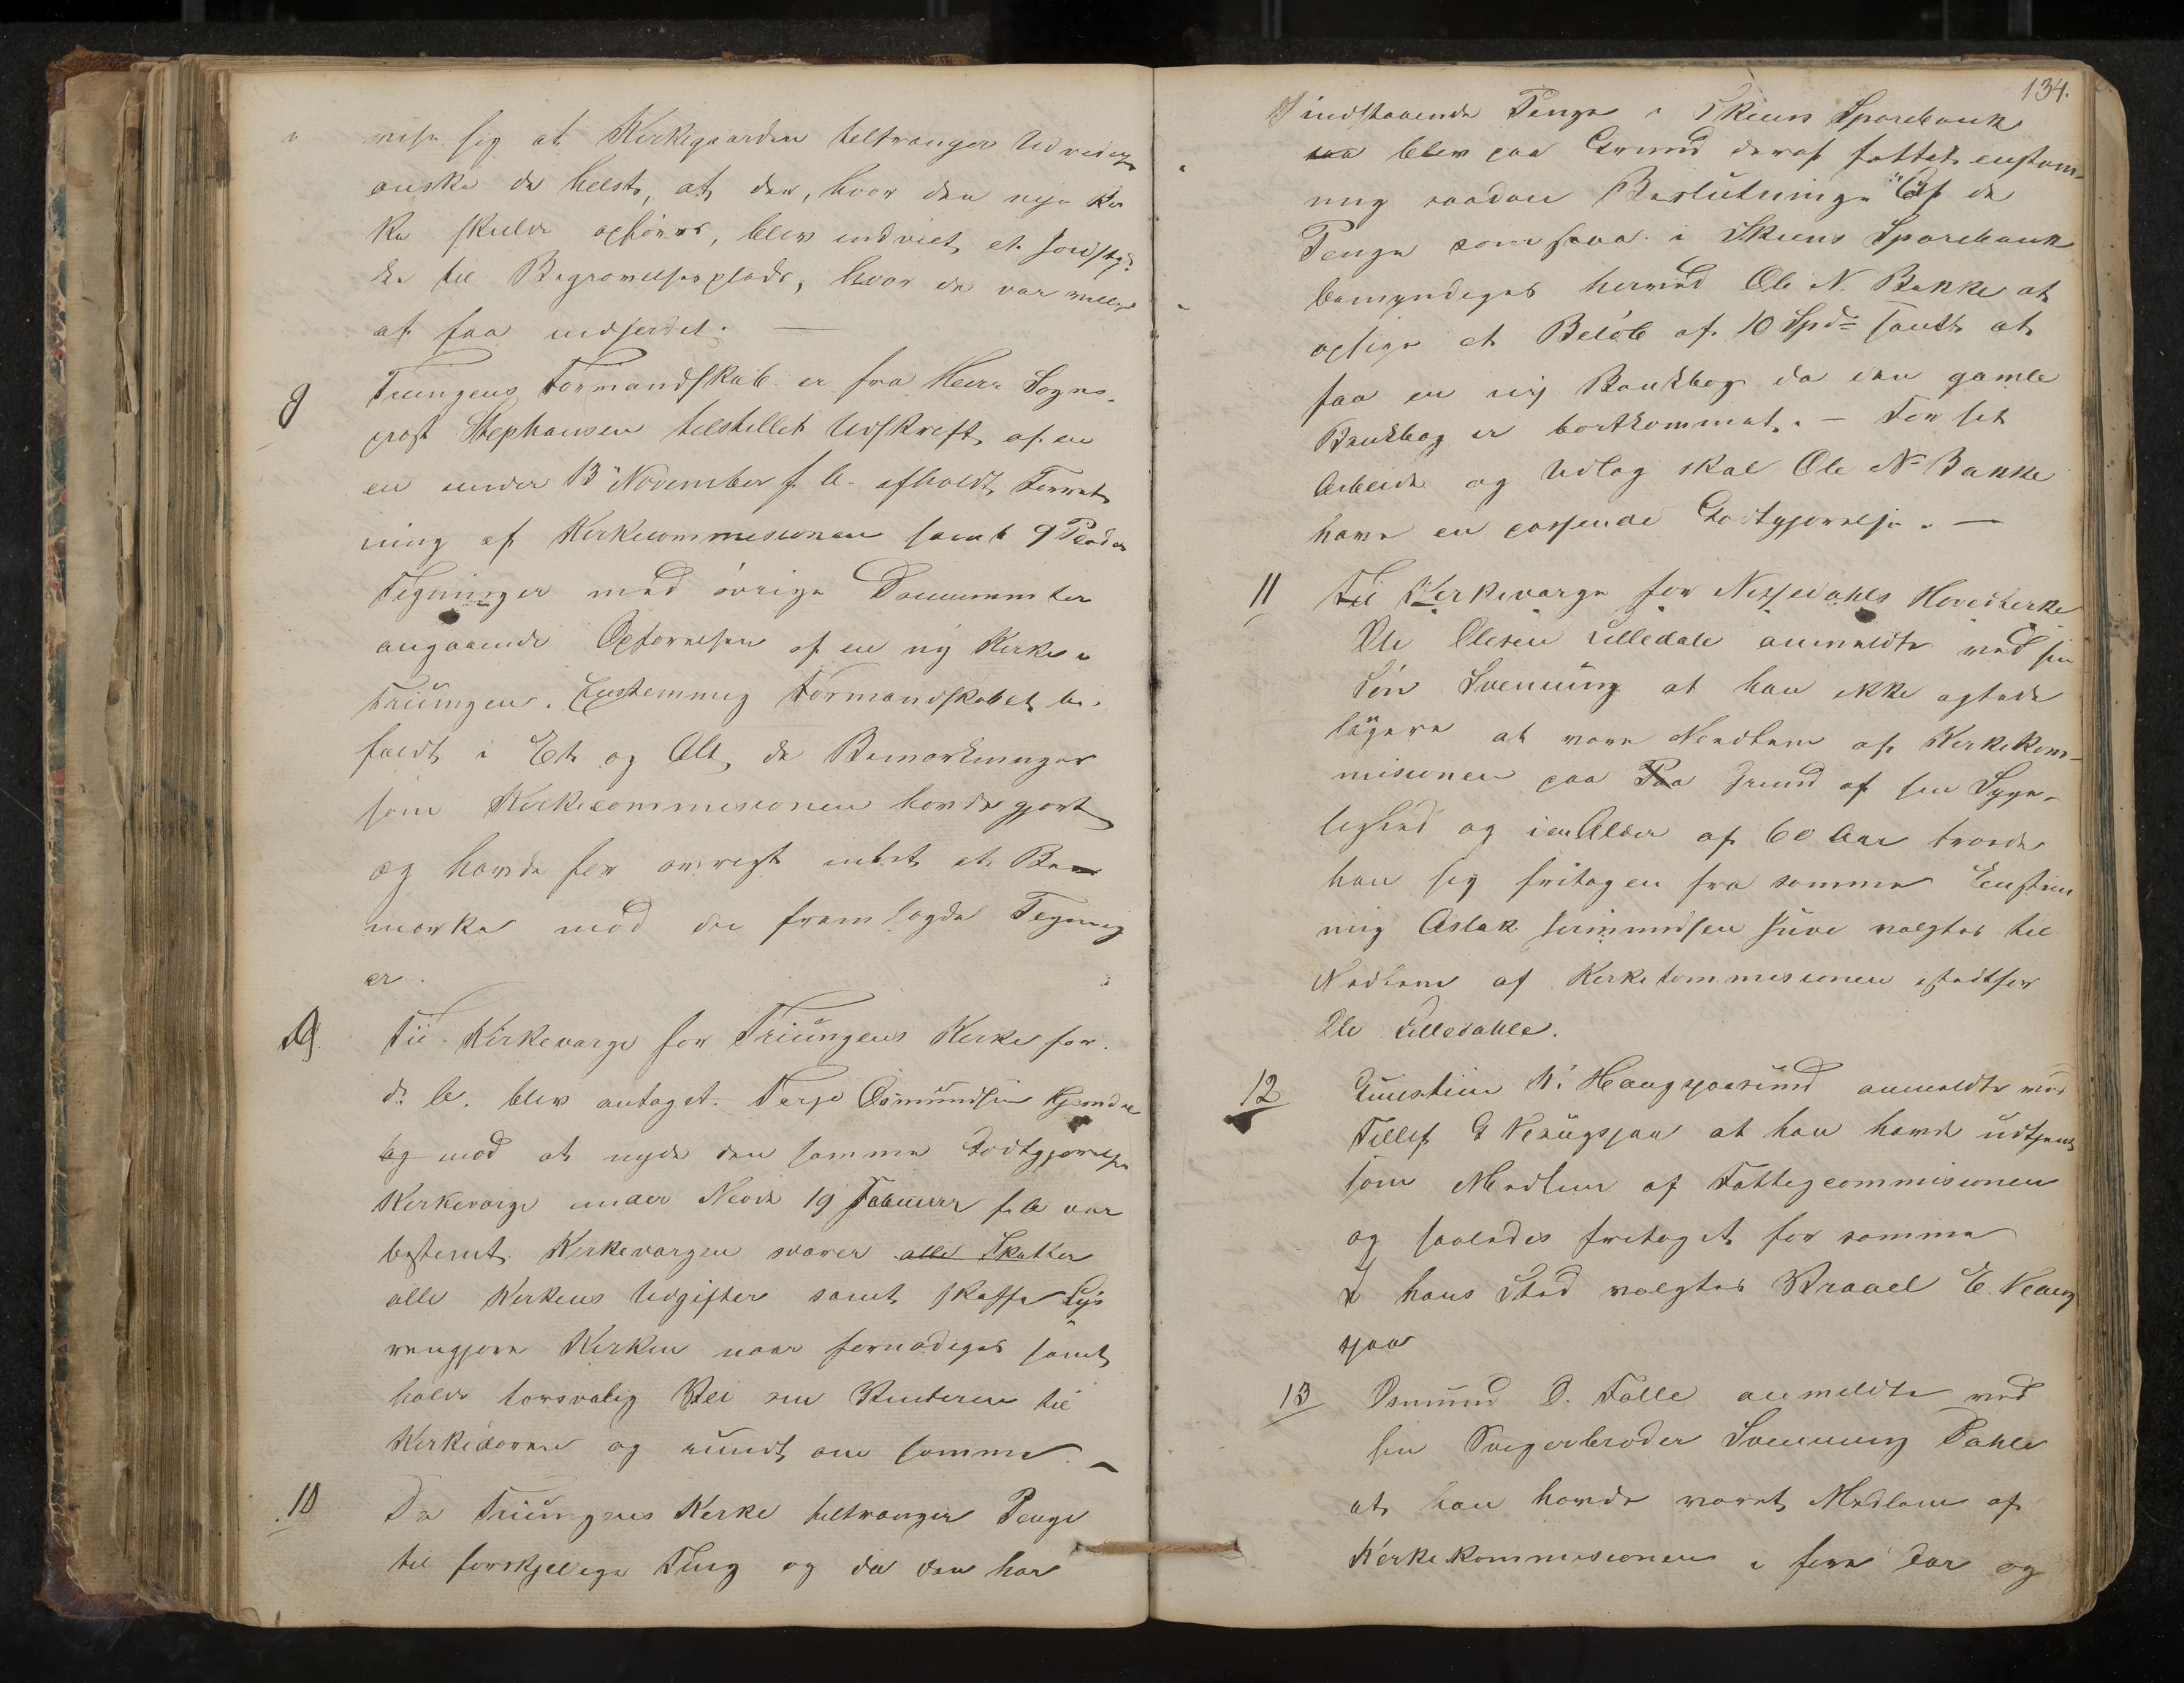 vise sig at Kirkegaarden tiltrænger Udvidelse
ønske de helst, at der, hvor den nye Kir
ke skulde opføres, blev indviet et Jordstyk
ke til Begravelsesplads, hvor de var villige
at faa indferdet. —
8 Triungens Formandskab er fra Herr Sogne-
prest Stephansen tilstillet Udskrift af en
en under 13de November f. A. afholdt Forret
ning af Kirkecommisionen samt 9
Tegninger med øvrige Documenter
angaaende Opførelsen af en ny Kirke i
Triungen. Enstemmig Formandskabet bi-
faldt i Et og Alt de Bemærkninger
som Kirkecommisionen havde gjort
og havde for øvrigt intet at Be
mærke mod de fremlagde Tegning
er.
9. Til Kirkeværge for Triungens Kirke for
d. A. blev antaget Terje Osmundsen
og mod at nyde den samme Godtgjørelse
Kirkeværge under No 19 Januar f. A var
bestemt. Kirkeværgen svarer alle Skatter
alle Kirkens Udgifter samt skaffe Lys
rengjøre Kirken naar fornødiges samt
holde forsvarlig Vei om Vinteren til
Kirkedøren og rundt om samme. —
10 Da Triungens Kirke tiltrænger Penge
til forskjellige Ting og da den har
134.
indstaaende Penge i Skiens Sparebank
saa blev paa Grund deraf fattet enstem-
mig saadan Beslutning: "Af de
Penge som staa i Skiens Sparebank
bemyndiges herved Ole N. Bakke at
opsige et Beløb af 10 Spd samt at
faa en ny Bankbog da den gamle
Bankbog er bortkommet. — For sit
Arbeide og Udlæg skal Ole N. Bakke
have en passende Godtgjørelse. —
11 Til Kirkeværge for Nissedahls Hovedkirke
Ole Olesen Lilledale anmeldte ved sin
Søn Svenning at han ikke agtede
lægere at være Medlem af Kirkekom-
misionen paa Paa Grund af sin Syge-
lighed og i en Alder af 60 Aar troede
han sig fritagen fra samme Enstem
mig Aslak valgtes til
Medlem af Kirkekommisionen istedtfor
Ole Lilledahle.
12 Gunstein K. Haugsjaasund anmeldte ved
Tellef G at han havde udtjent
som Medlem af Fattigcommisionen
og saaledes fritaget for samme
I hans Sted valgtes Kraael E.
sjaa
13 Osmund O. Falle anmeldte ved
sin Svigerbroder Svenning Dahle
at han havde været Medlem af
Kirkekommisionen i fire Aar og